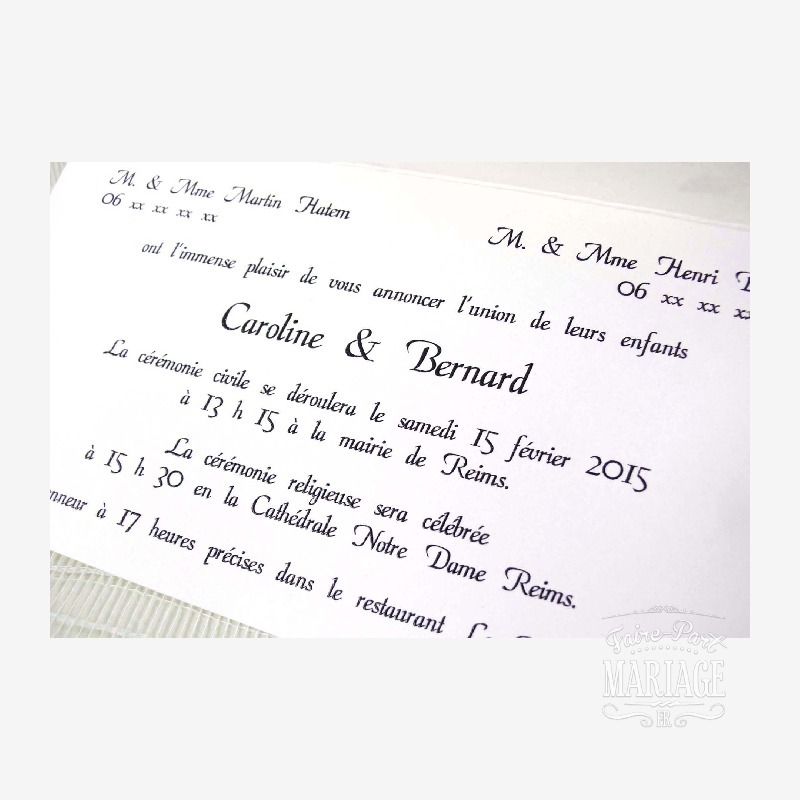 M. & Mme Martin Hatem
06 xx xx xx xx
M. & Mme Henri
06 xx xx xx
ont l'immense plaisir de vous annoncer l'union de leurs enfants
Caroline & Bernard
La cérémonie civile se déroulera le samedi 15 février 2015
à 13 h 15 à la mairie de Reims.
La cérémonie religieuse sera célébrée
à 15 h 30 en la Cathédrale Notre Dame Reims.
à 17 heures précises dans le restaurant
Faire-Part
MARIAGE
.FR